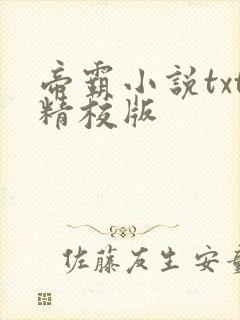 帝霸小説txt
精校版
佐藤友生 安童